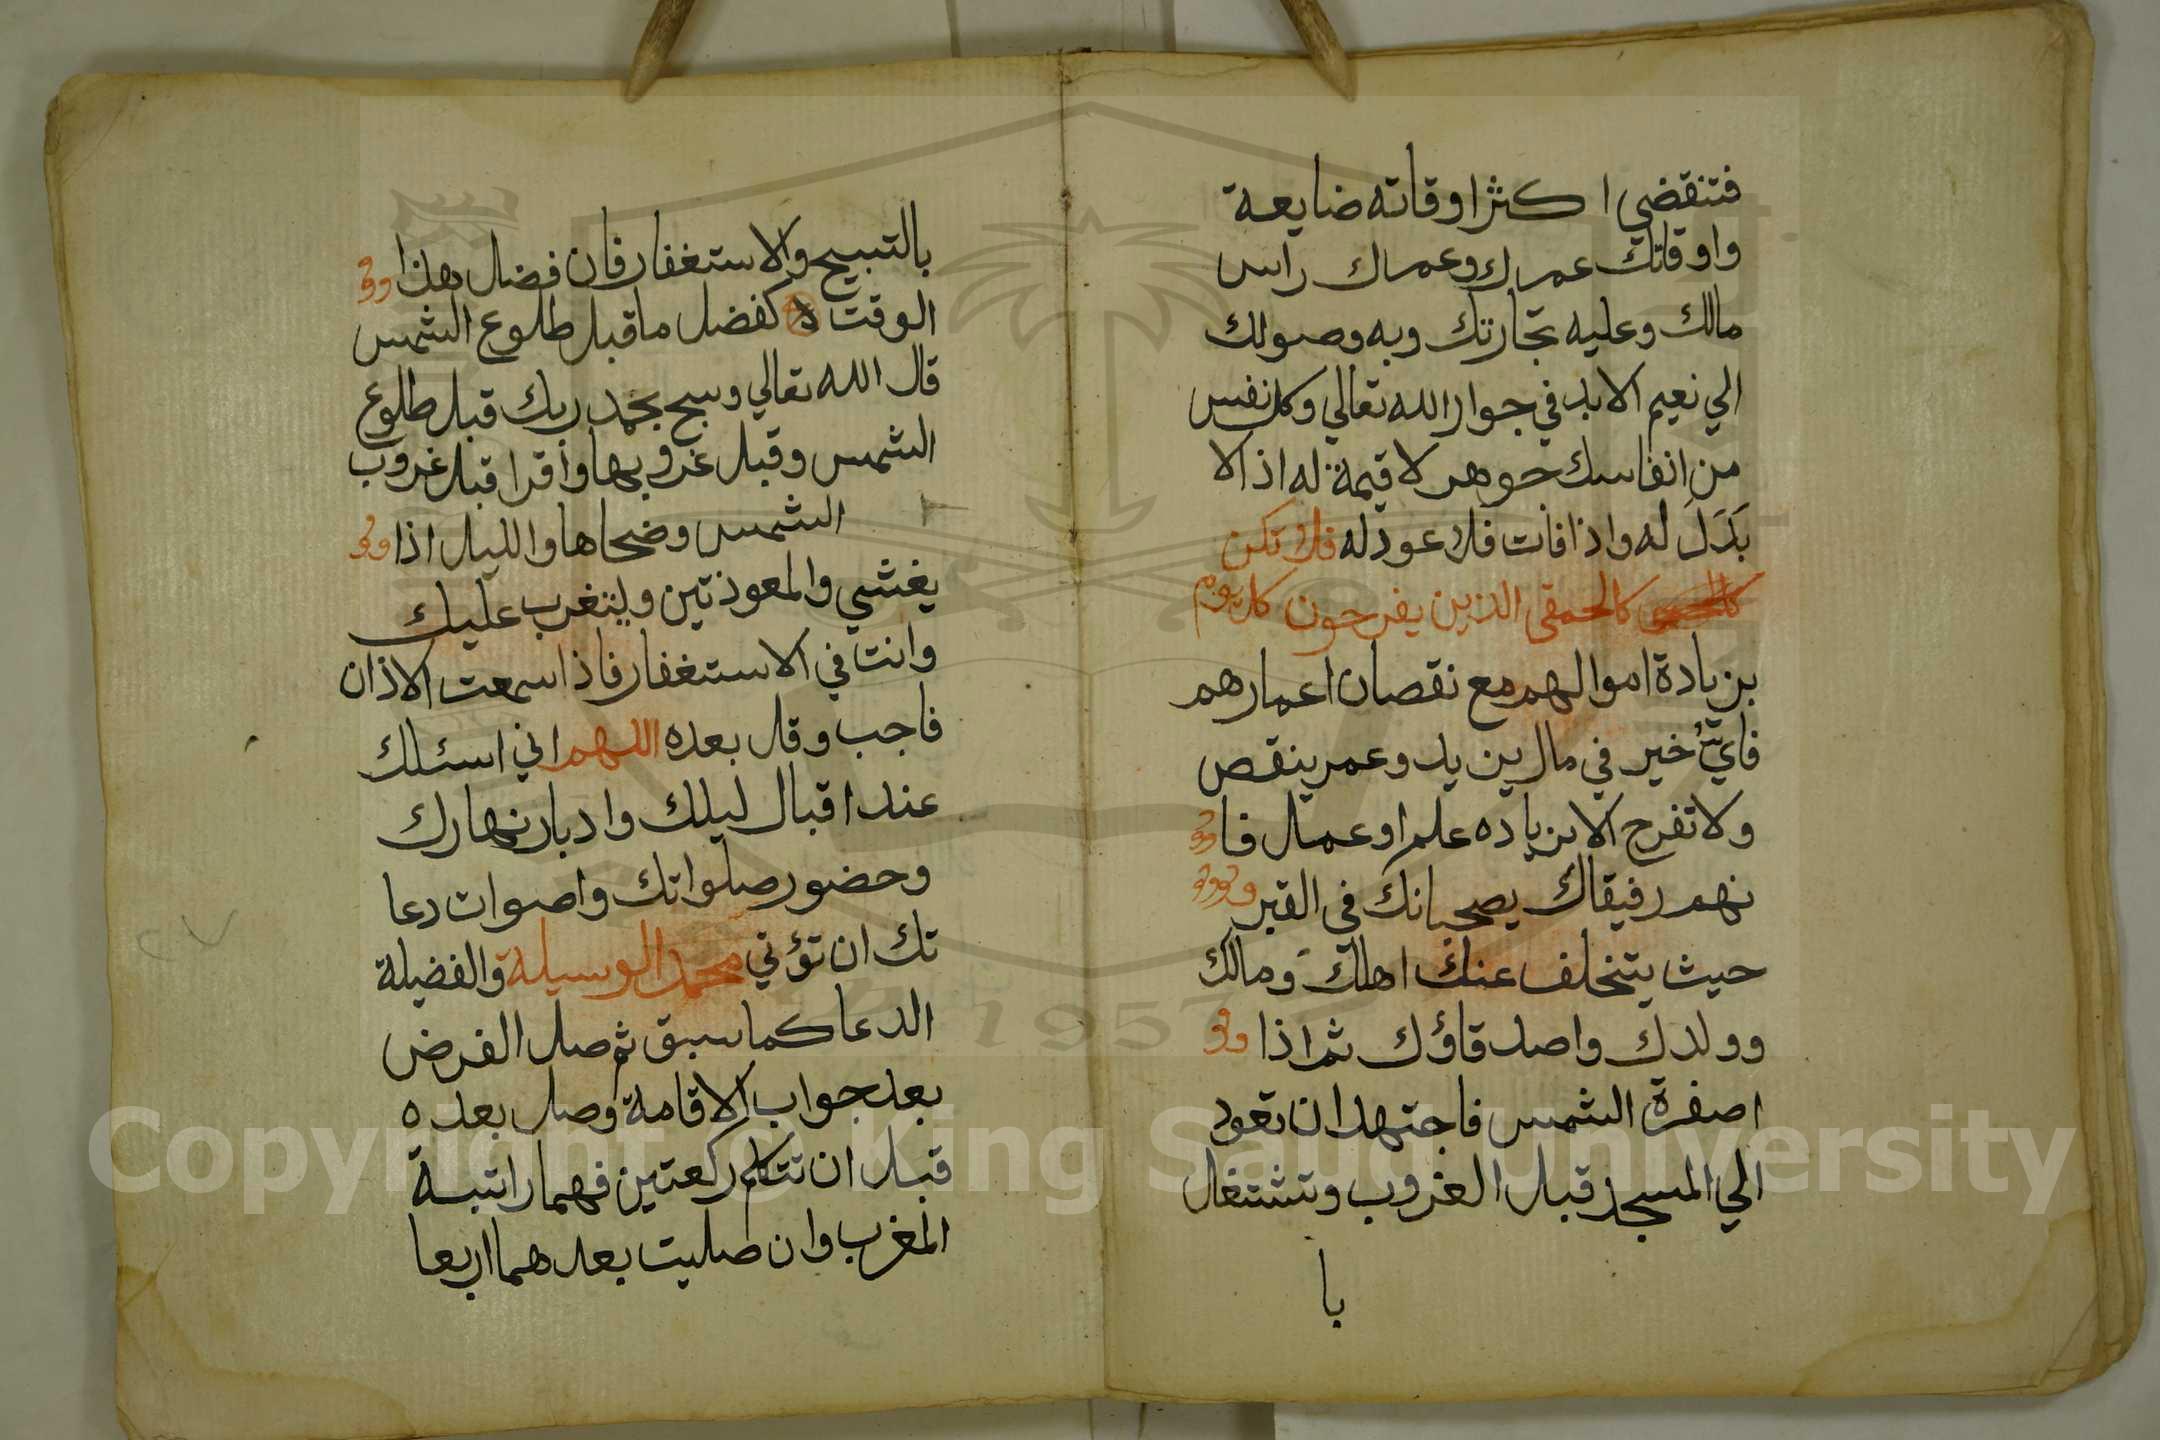 فتنقضي اكثر اوقاته ضايعة
واوقاتك عمرك وعمرك راس
مالك وعليه تجارتك وبه وصولك
الي نعيم الابد في جوار الله تعالي وكل نفس
من انفاسك جوهر لا قيمة له اذ لا
بَدَلَ له واذا فات فلا عود له فلا تكن
كالحمقى الذين يفرحون كل يوم
بزيادة اموالهم مع نقصان اعمارهم
فاي خير في مال يزيد وعمر ينقص
ولا تفرح الا بزياده علم او عمل فا
نهم رفيقاك يصحبانك في القبر
حيث يتخلف عنك اهلك ومالك
وولدك واصدقاؤك ثم اذا
اصفرة الشمس فاجتهد ان تعود
الي المسجد قبل الغروب وتشتغل
با
بالتسبيح والاستغفار فان فضل هذا
الوقت كفضل ما قبل طلوع الشمس
قال الله تعالي وسبح بحمد ربك قبل طلوع
الشمس وقبل غروبها واقرا قبل غروب
الشمس وضحاها والليل اذا
يغشي والمعوذتين ولتغرب عليك
وانت في الاستغفار فاذا سمعت الاذان
فاجب وقل بعده اللهم اني اسئلك
عند اقبال ليلك وادبار نهارك
وحضور صلواتك واصوات دعا
تك ان تؤتي محمد الوسيلة والفضيلة
الدعا كما سبق ثم صل الفرض
بعد جواب الاقامة وصل بعده
قبل ان تتكلم ركعتين فهما راتبة
المغرب وان صليت بعدهما اربعا
1957
Copyright © King Saud University